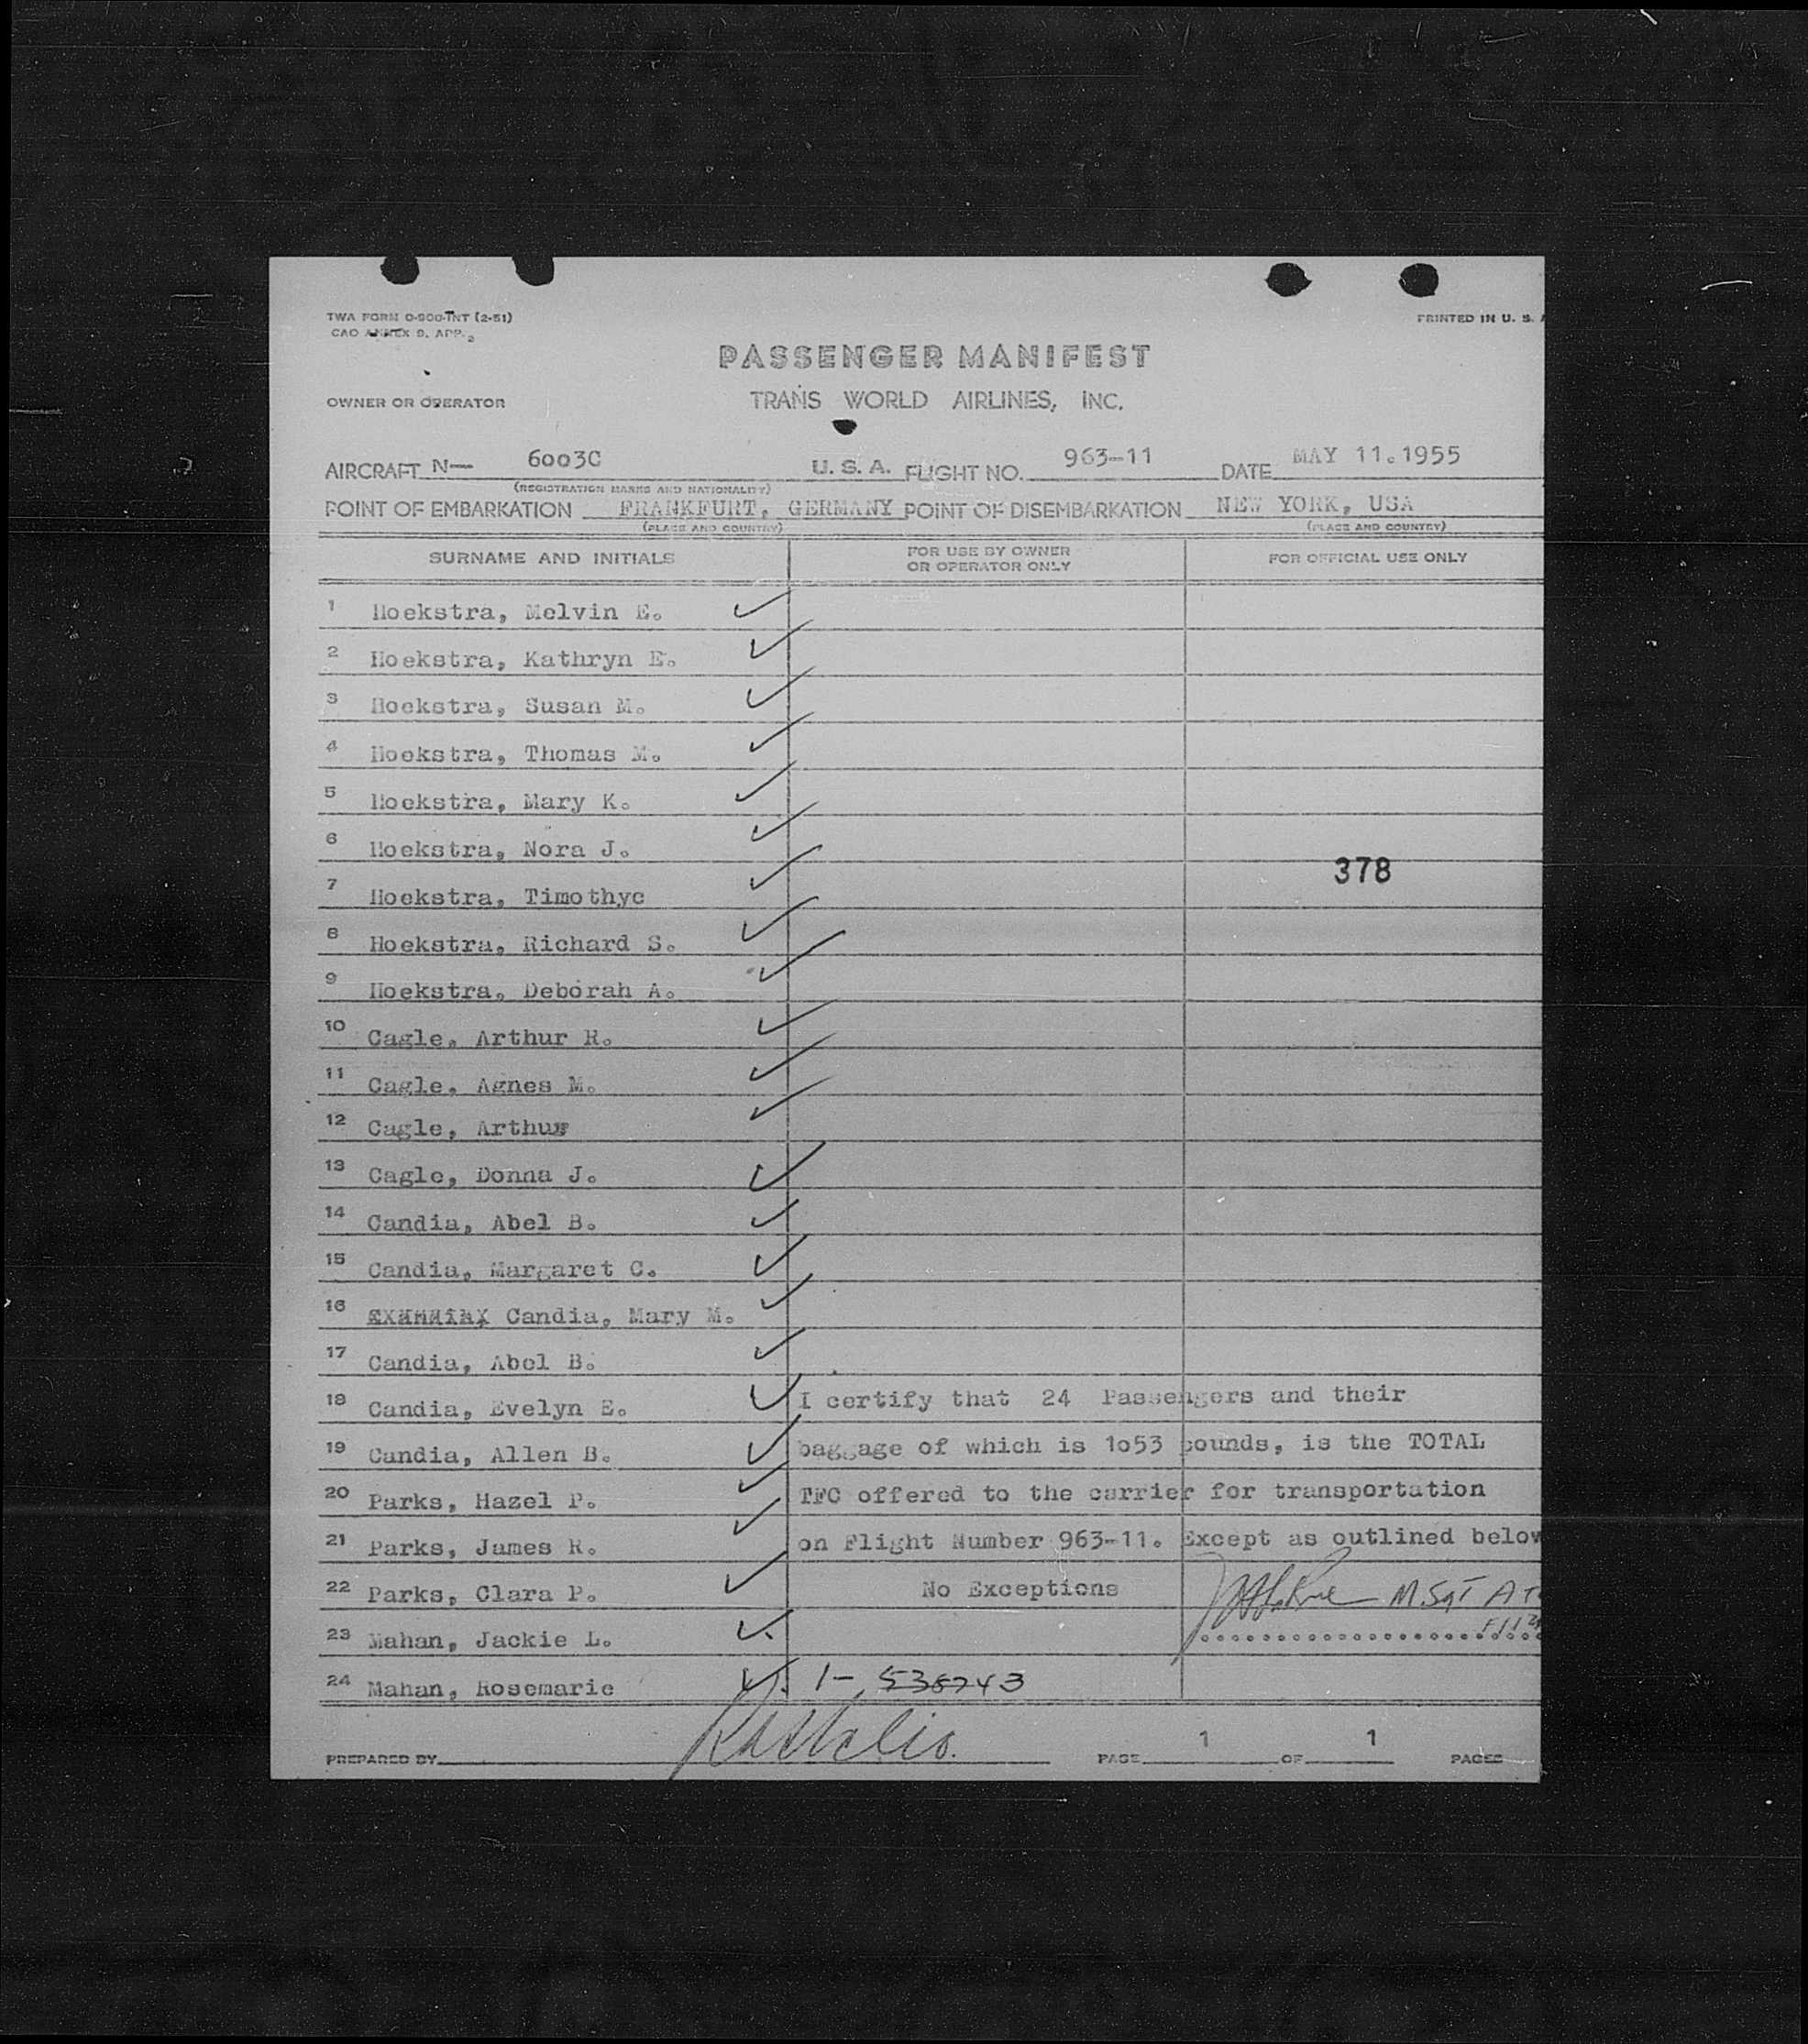 TWA FORM O-900-INT (2-51)
CAO ANNEX 9, APP. 2
PRINTED IN U. S. A
PASSENGER MANIFEST
OWNER OR OPERATOR TRANS WORLD AIRLINES, INC.
AIRCRAFT N— 6003C U. S. A. FLIGHT NO. 963-11 DATE MAY 11.1955
(REGISTRATION MARKS AND NATIONALITY)
POINT OF EMBARKATION FRANKFURT, GERMANY POINT OF DISEMBARKATION NEW YORK, USA
(PLACE AND COUNTRY) (PLACE AND COUNTRY)
SURNAME AND INITIALS FOR USE BY OWNER OR OPERATOR ONLY FOR OFFICIAL USE ONLY
1 Hoekstra, Melvin E.
2 Hoekstra, Kathryn E.
3 Hoekstra, Susan M.
4 Hoekstra, Thomas M.
5 Hoekstra, Mary K.
6 Hoekstra, Nora J.
378
7 Hoekstra, Timothyc
8 Hoekstra, Richard S.
9 Hoekstra, Deborah A.
10 Cagle, Arthur R.
11 Cagle, Agnes M.
12 Cagle, Arthur
13 Cagle, Donna J.
14 Candia, Abel B.
15 Candia, Margaret C.
16 Candia, Mary M.
17 Candia, Abel B.
18 Candia, Evelyn E. I certify that 24 Passengers and their
19 Candia, Allen B. baggage of which is 1o53 pounds, is the TOTAL
20 Parks, Hazel P. TFC offered to the carrier for transportation
21 Parks, James R. on Flight Number 963-11. Except as outlined below
22 Parks, Clara P. No Exceptions M.Sgt
23 Mahan, Jackie L.
24 Mahan, Rosemarie 1- 538743
PREPARED BY PAGE 1 OF 1 PAGES